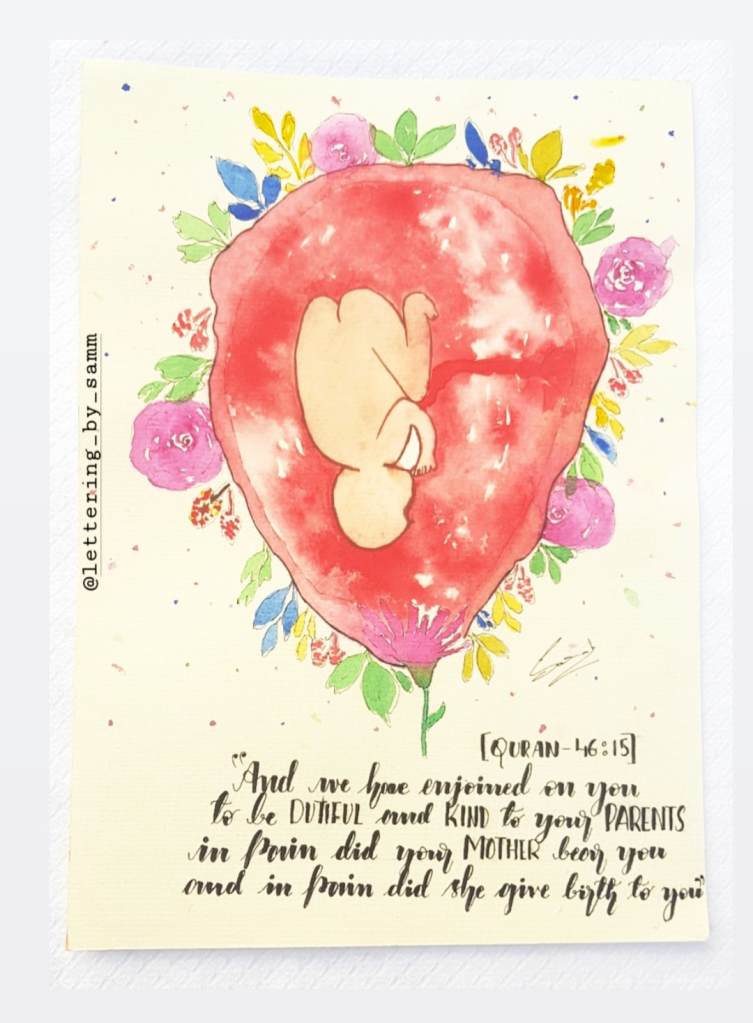 @lettering_by_samm
[QURAN-46:15]
"And we have enjoined on you
to be DUTIFUL and KIND to your PARENTS
in pain did your MOTHER bear you
and in pain did she give birth to you"